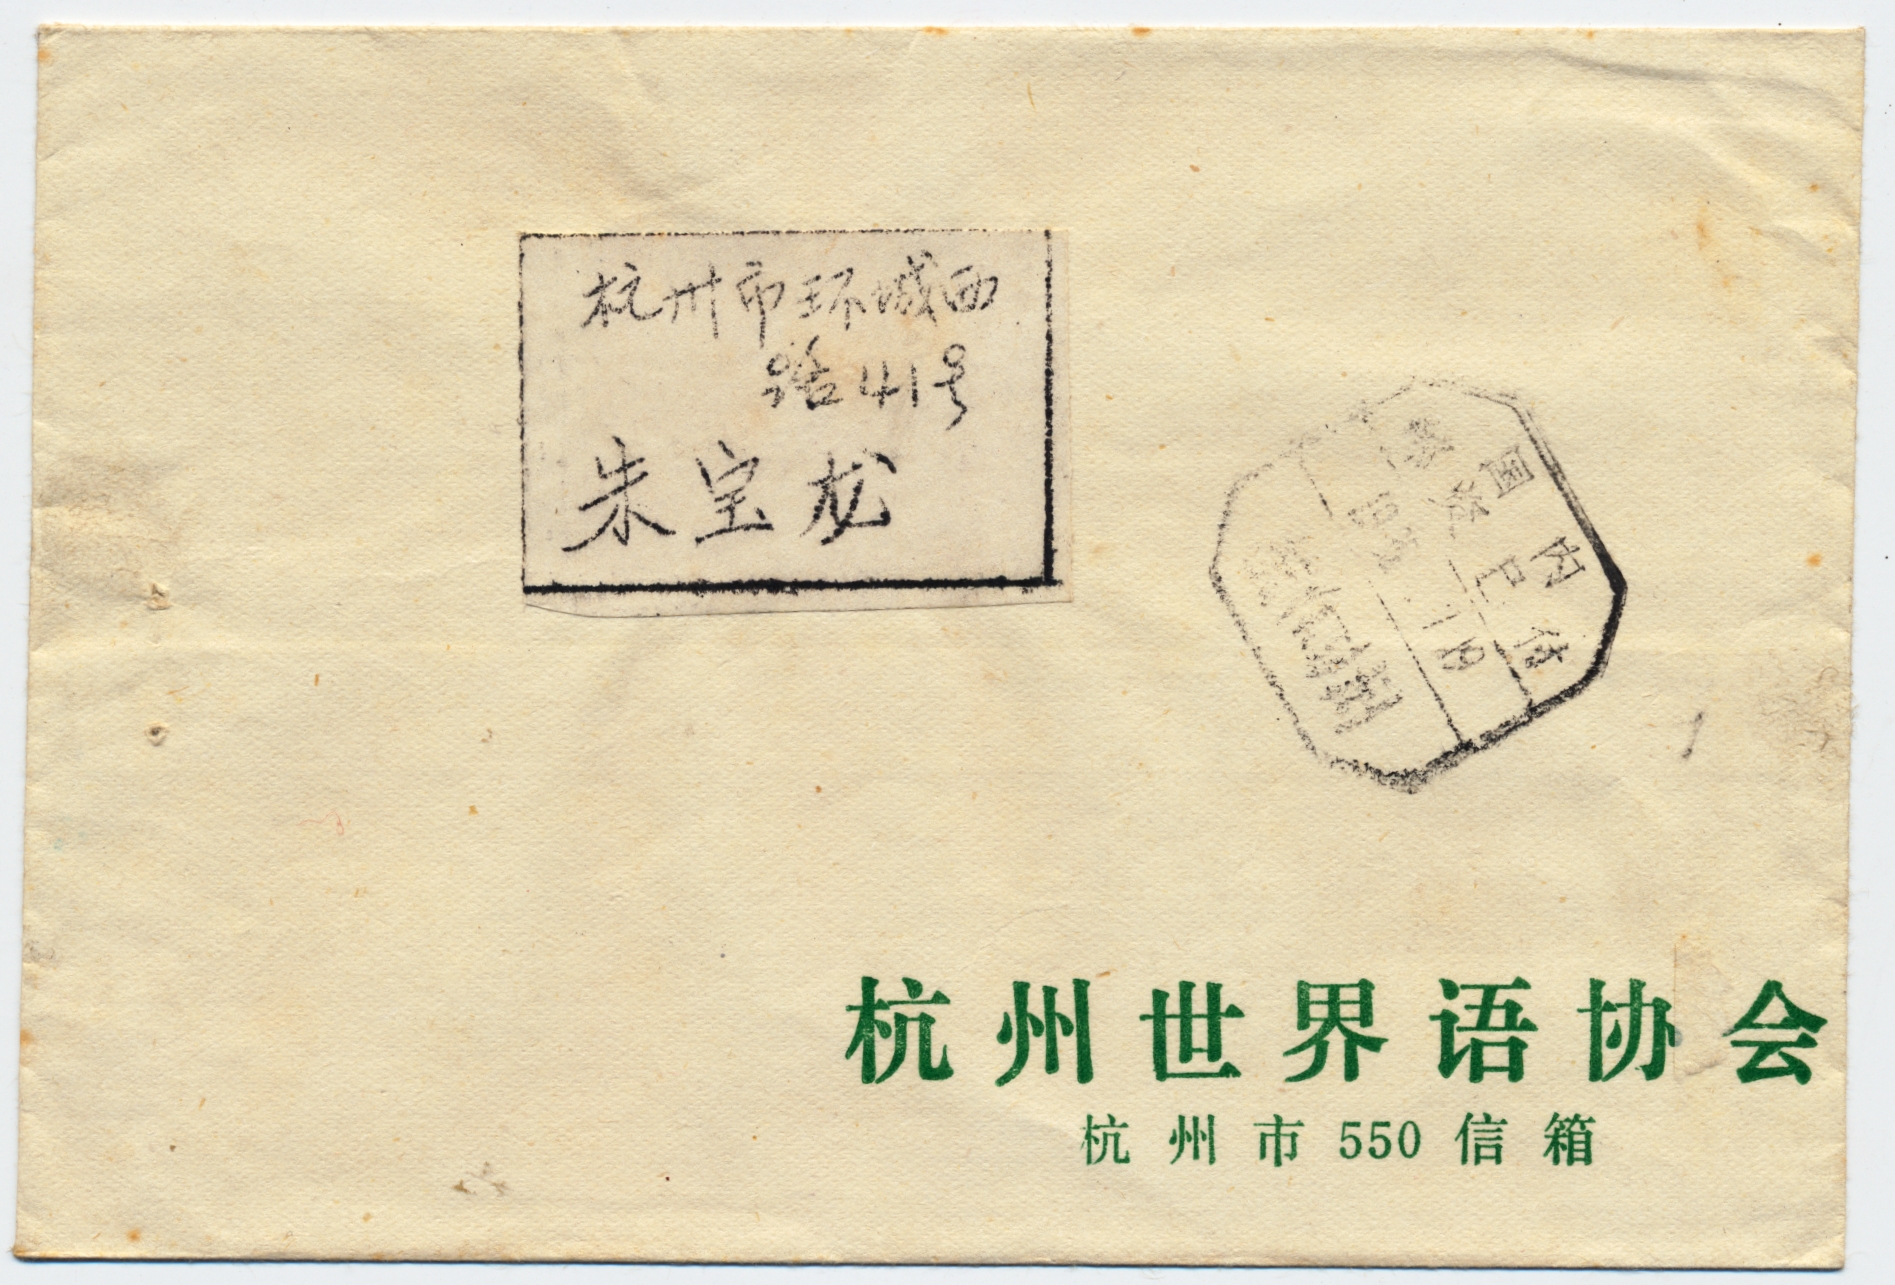 杭州市环城西
路41号
朱宝龙
国内
已付
杭州世界语协会
杭州市550信箱